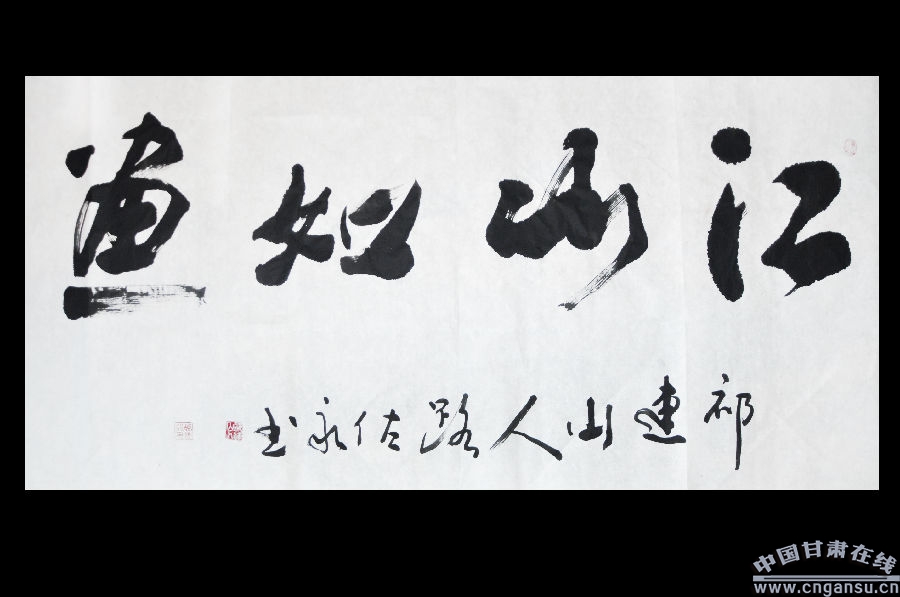 江山如画
祁连山人路佐永书
中国甘肃在线
www.cngansu.cn